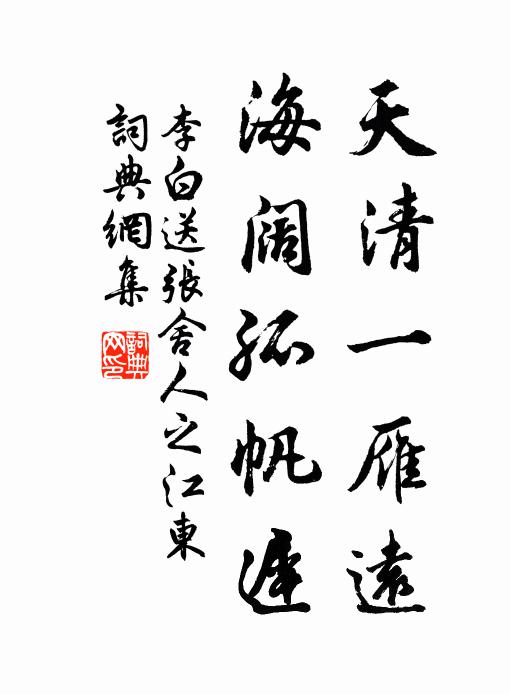 天清一雁遠
海阔孤帆遲
李白送張舍人之江東
詞典網集
詞典
网印